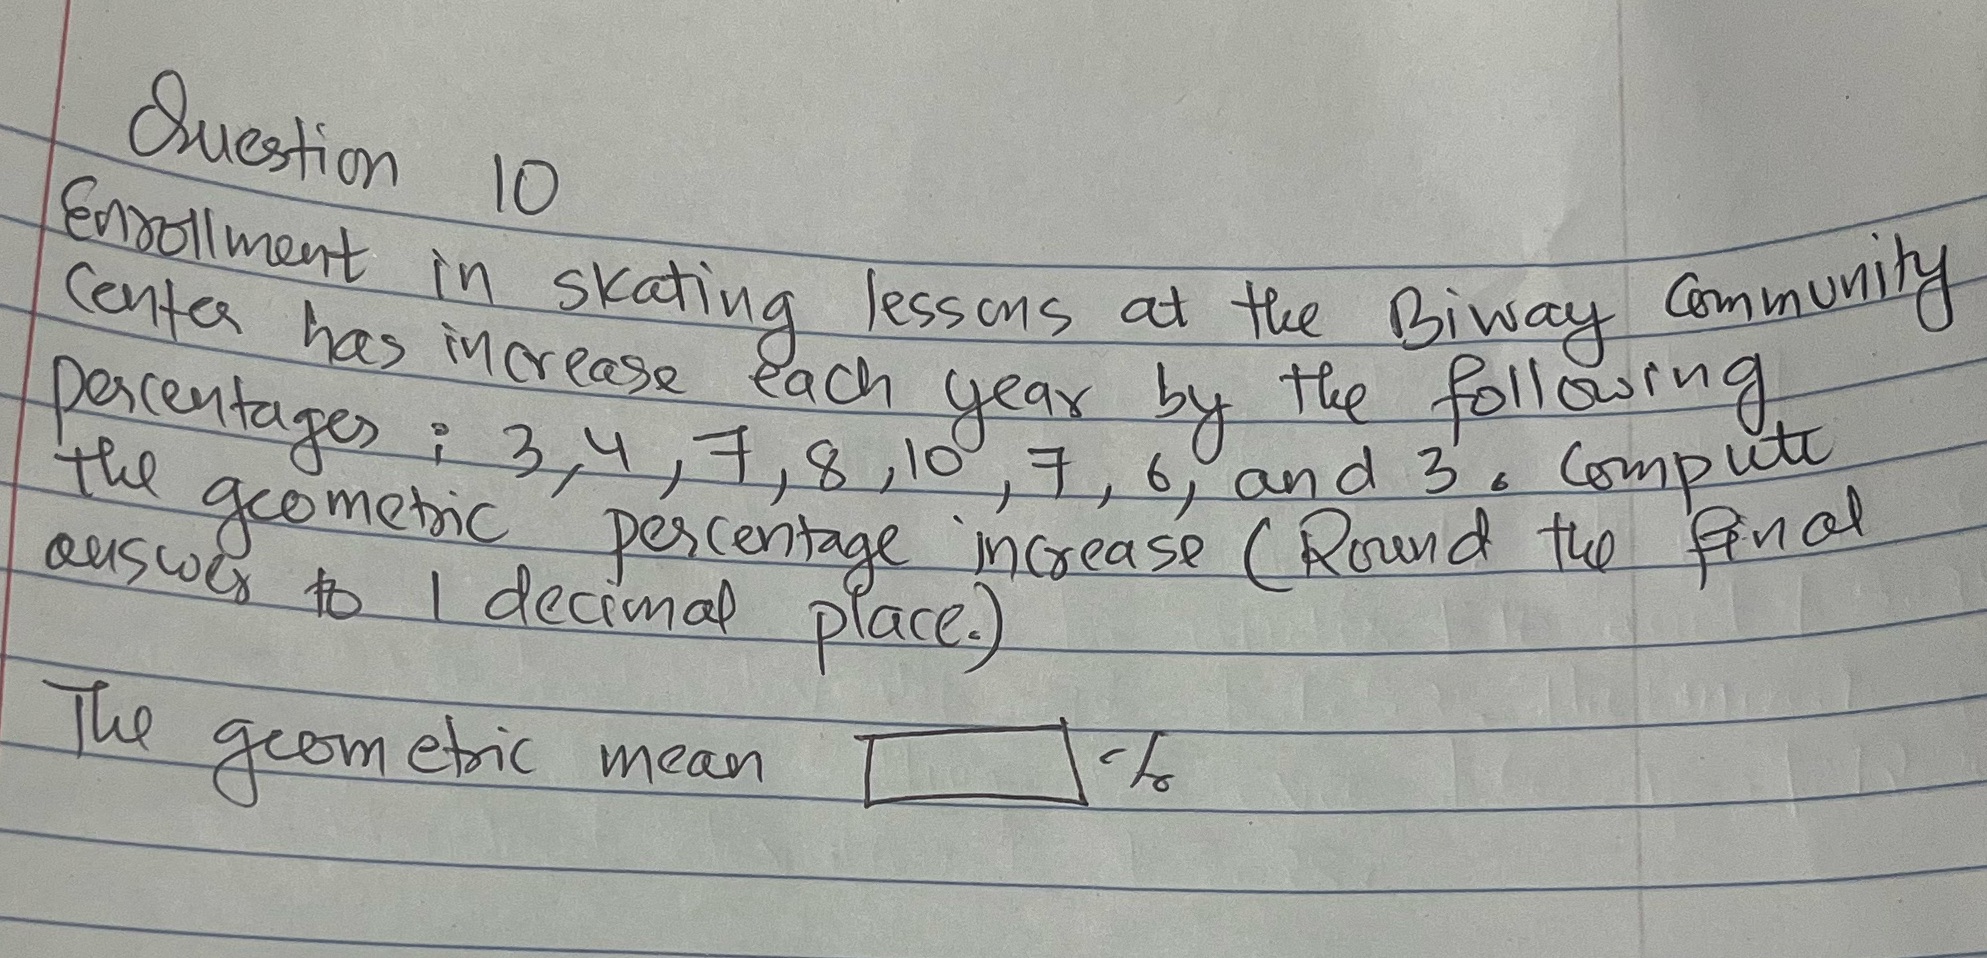 Question 10
Enrollment in skating lessons at the Biway Community
Center has increase each year by the following
percentages : 3, 4, 7, 8, 10, 7, 6, and 3. Compute
the geometric percentage increase (Round the final
answer to 1 decimal place.)
The geometric mean %